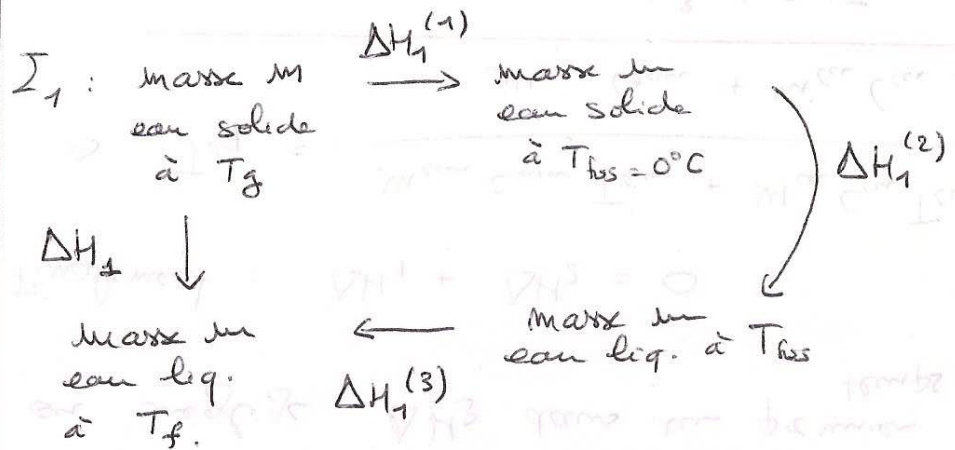 Σ₁ : masse m
eau solide
à Tg
ΔH₁⁽¹⁾
masse m
eau solide
à Tfus = 0°C
ΔH₁⁽²⁾
ΔH₁
masse m
eau liq. à Tfus
ΔH₁⁽³⁾
masse m
eau liq.
à Tf.